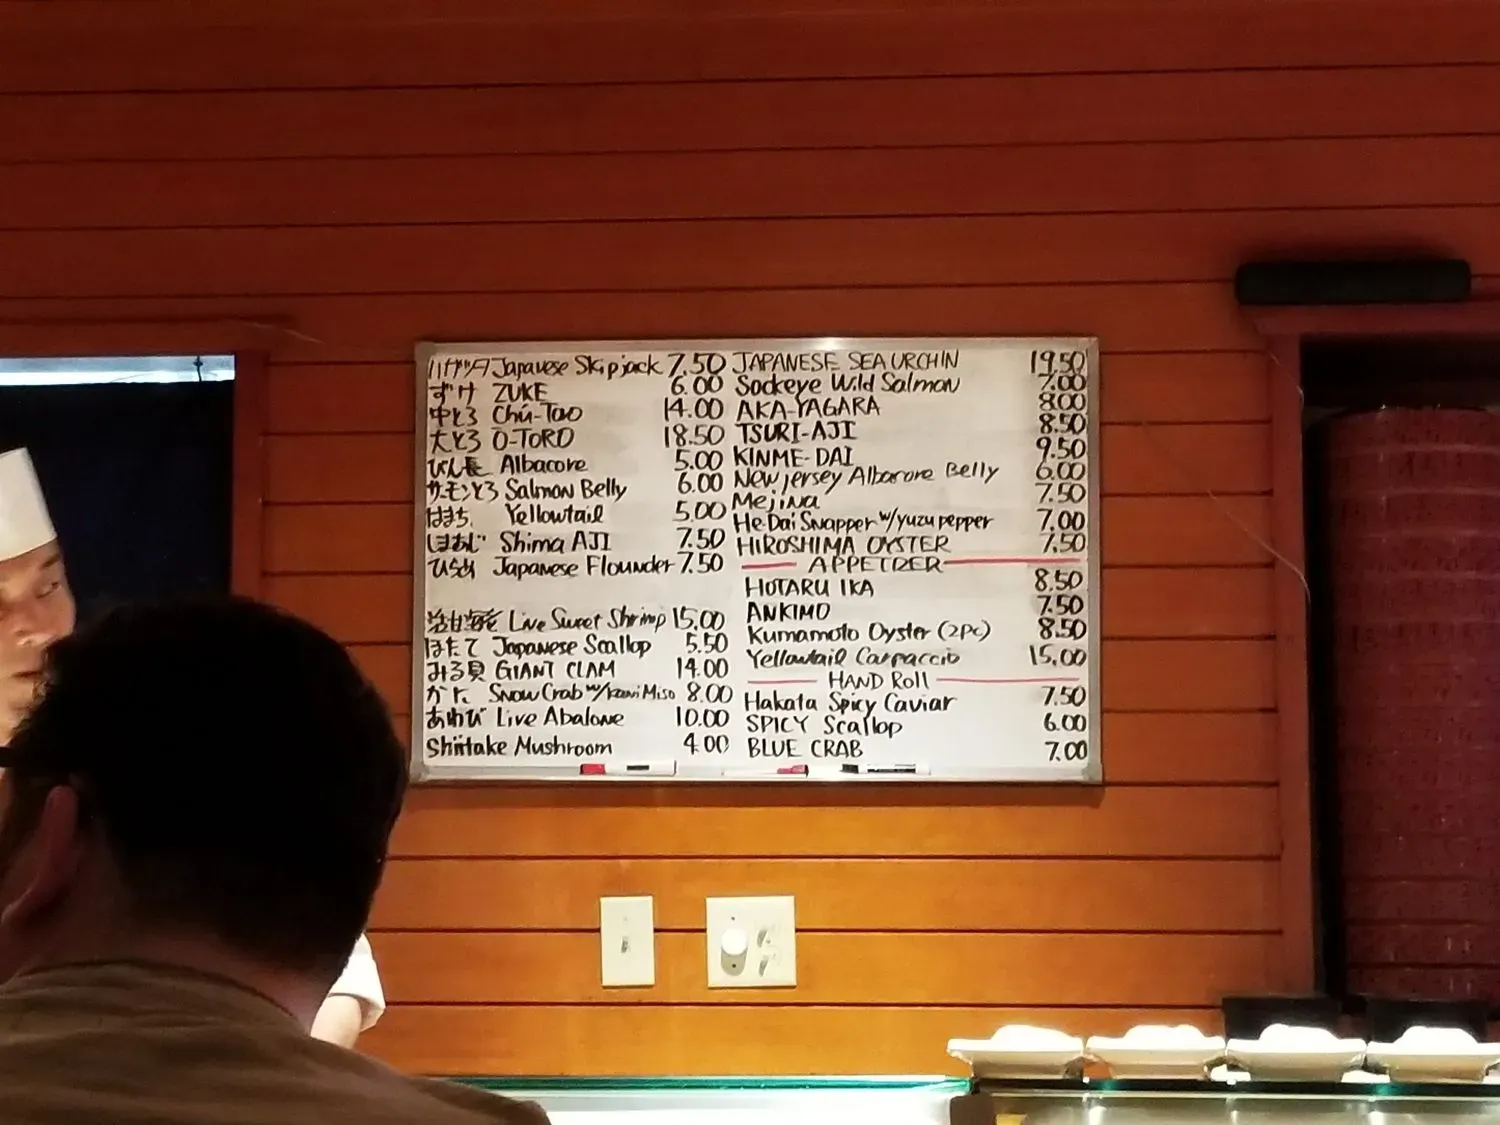 ハガツヲ Japanese Skipjack 7.50
ずけ ZUKE 6.00
中とろ Chú-Toro 14.00
大とろ Ō-TORO 18.50
びん長 Albacore 5.00
サーモンとろ Salmon Belly 6.00
はまち Yellowtail 5.00
しまあじ Shima AJI 7.50
ひらめ Japanese Flounder 7.50
活甘海老 Live Sweet Shrimp 15.00
ほたて Japanese Scallop 5.50
みる貝 GIANT CLAM 14.00
かに Snow Crab w/kani Miso 8.00
あわび Live Abalone 10.00
Shiitake Mushroom 4.00
JAPANESE SEA URCHIN 19.50
Sockeye Wild Salmon 7.00
AKA-YAGARA 8.00
TSURI-AJI 8.50
KINME-DAI 9.50
New Jersey Albacore Belly 6.00
Mejina 7.50
He-Dai Snapper w/yuzu pepper 7.00
HIROSHIMA OYSTER 7.50
APPETIZER
HOTARU IKA 8.50
ANKIMO 7.50
Kumamoto Oyster (2pc) 8.50
Yellowtail Carpaccio 15.00
HAND Roll
Hakata Spicy Caviar 7.50
SPICY Scallop 6.00
BLUE CRAB 7.00